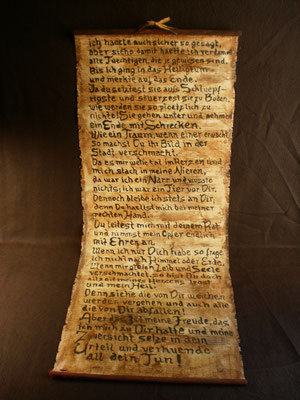 ich haette auch sicher so gesagt,
aber siehe damit haette ich verdammt
alle Juenigen, die je gewesen sind.
Bis ich ging in das Heiligtum
und merkte auf das Ende.
Ja du setztest sie aufs Schluepf-
rigste und stuerzest sie zu Boden,
wie werden sie so ploetzlich zu
nichte! Sie gehen unter und nehmen
ein Ende mit Schrecken.
Wie ein Traum, wenn einer erwacht
so machst Du ihr Bild in der
Stadt verschmacht.
Da es mir wehe tat im Herzen und
mich stach in meine Nieren,
da war ich ein Narr und wusste
nichts; ich war ein Tier vor Dir.
Dennoch bleibe ich stets an Dir,
denn Du haellst mich bei meiner
rechten Hand.
Du leitest mich mit deinem Rat
und nimmst mein endlich
mit Ehren an.
Wenn ich nur Dich habe so frage
ich nicht nach Himmel oder Erde.
Wenn mir gleich Leib und Seele
verschmachtet, so bist Du doch
allzeit meines Herzens Trost
und mein Heil.
Denn siehe die von Dir weichen
werden vergehen und auch alle
die von Dir abfallen!
Aber das ist meine Freude, das
ich mich zu Dir halte und meine
Zuversicht setze in dein
Urteil und verkuende
all dein Tun!